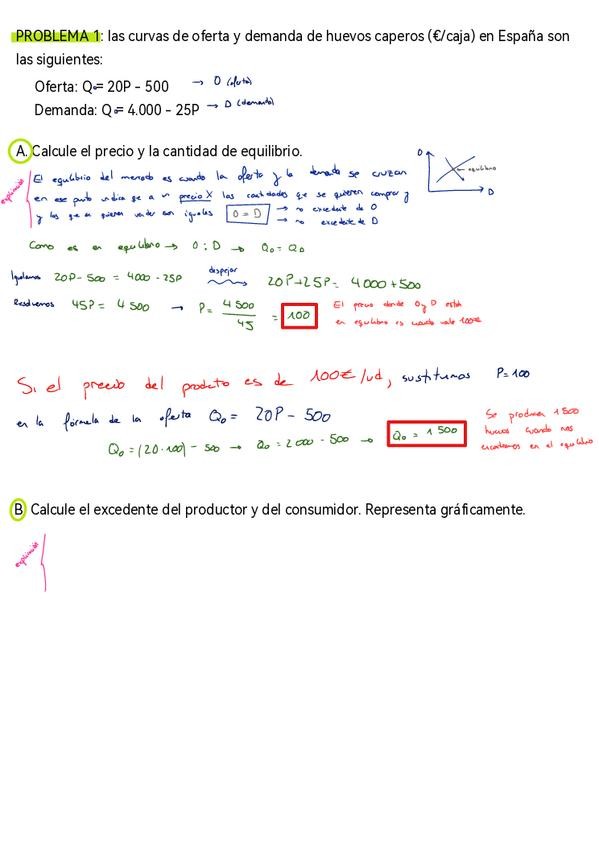 PROBLEMA 1: las curvas de oferta y demanda de huevos caperos (€/caja) en España son
las siguientes:
Oferta: Qo= 20P - 500 → O (oferta)
Demanda: Qd= 4.000 - 25P → D (demanda)
A. Calcule el precio y la cantidad de equilibrio.
explicación
El equilibrio del mercado es cuando la oferta y la demanda se cruzan
en ese punto indica que a un precio X las cantidades que se quieren comprar y
y las que se quieren vender son iguales O = D → no excedente de O
→ no excedente de D
O
equilibrio
D
Como es en equilibrio → O = D → Qo = QD
Igualamos 20P - 500 = 4000 - 25P despejar 20P + 25P = 4000 + 500
Resolvemos 45P = 4 500 → P = 4 500 / 45 = 100
El precio donde O y D están
en equilibrio es cuando vale 100€
Si el precio del producto es de 100€/ud, sustituimos P = 100
en la fórmula de la oferta Qo = 20P - 500
Qo = (20·100) - 500 → Qo = 2 000 - 500 → Qo = 1 500
Se producen 1 500
huevos cuando nos
encontramos en el equilibrio
B. Calcule el excedente del productor y del consumidor. Representa gráficamente.
explicación